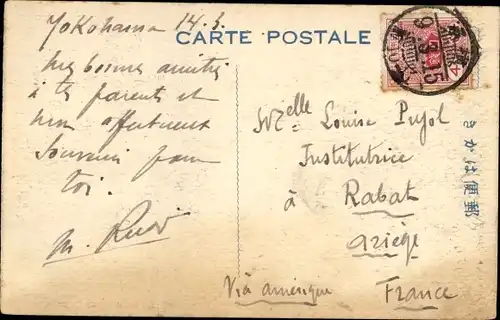 Yokohama 14.3.
CARTE POSTALE
Mes bonnes amitiés
à tes parents et
mon affectueux
souvenir pour
toi.
M.
Melle Louise Pujol
Institutrice
à
Rabat
Ariège
France
Via amérique
きかは便郵